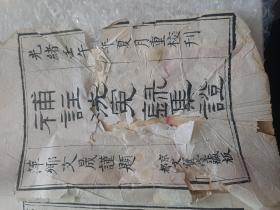 光緒壬午年夏月重校刊
補註洗冤錄集證
萍鄉文晟謹題
藏板